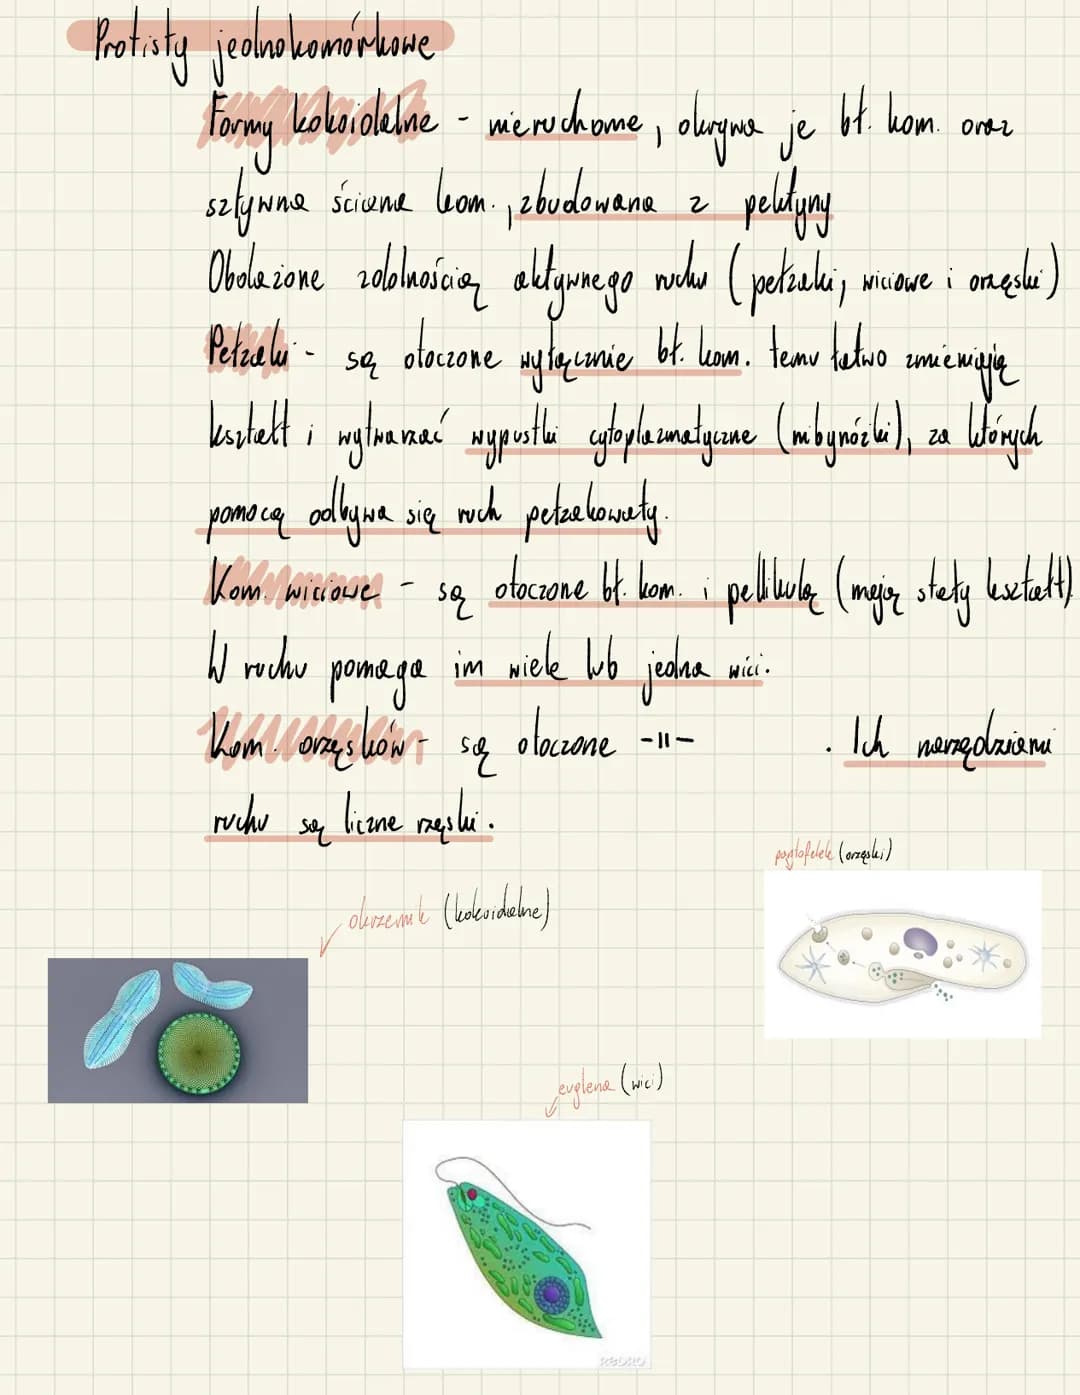 Protisty jednokomórkowe
Formy kokoidalne - nieruchome, okrywa je bł. kom. oraz
sztywna ściana kom., zbudowana z pektyny
Obdażone zdolnością aktywnego ruchu (pełzaki, wiciowe i orzęski)
Pełzaki - są otoczone wyłącznie bł. kom. temu łatwo zmieniają
kształt i wytwarzać wypustki cytoplazmatyczne (nibynóżki), za których
pomocą odbywa się ruch pełzakowaty.
Kom. wiciowe - są otoczone bł. kom. i pellikulą (mają stały kształt)
W ruchu pomaga im wiele lub jedna wici.
Kom. orzęsków - są otoczone -11- . Ich narzędziami
ruchu są liczne rzęski.
pantofelek (orzęski)
okrzemk (kokoidalne)
euglena (wici)